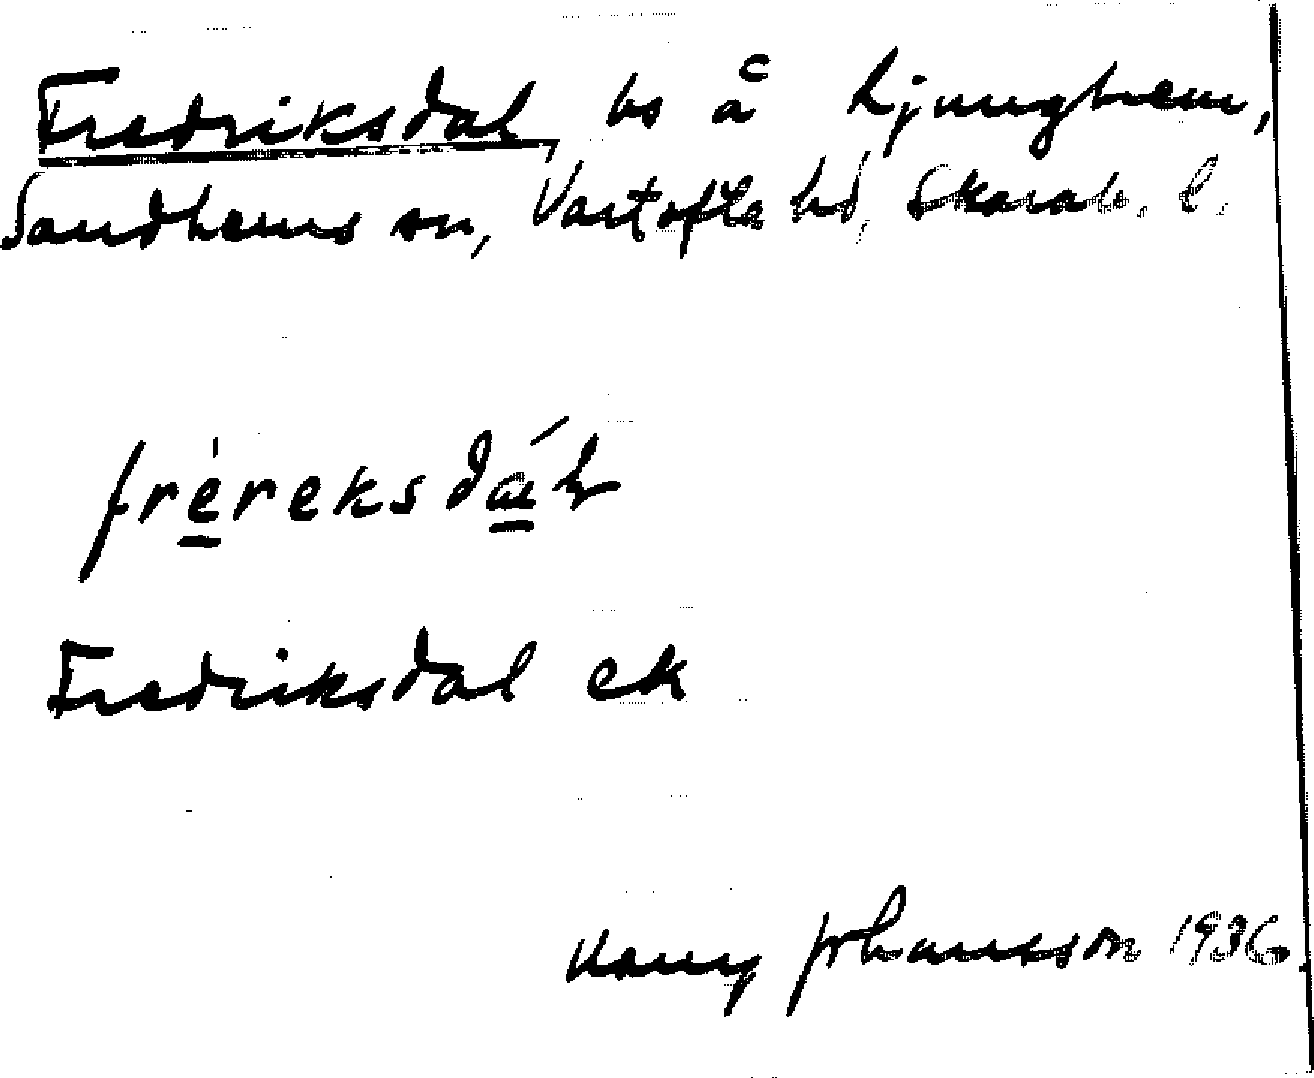 Fredriksdal, bs å Ljunghem,
Sandhems sn, Vartofta hd, Skarab. l.
fréreksdál
Fredriksdal ek
Johansson 1936.